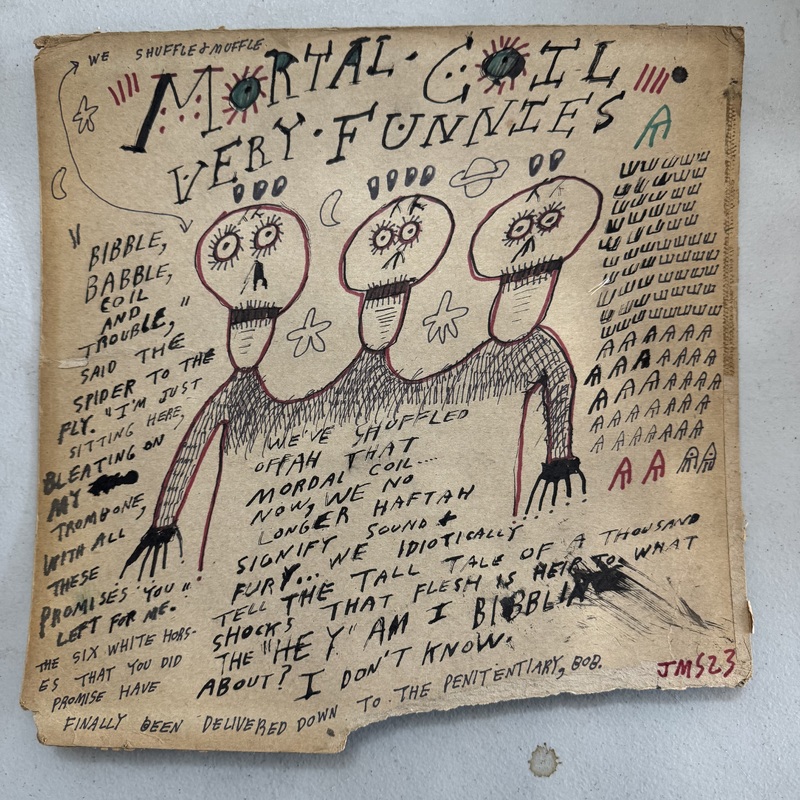 WE SHUFFLE & MUFFLE
MORTAL · COIL
VERY · FUNNIES
"BIBBLE,
BABBLE,
COIL
AND
TROUBLE,"
SAID THE
SPIDER TO THE
FLY. "I'M JUST
SITTING HERE,
BLEATING ON
MY
TROMBONE,
WITH ALL
THESE
PROMISES YOU
LEFT FOR ME."
THE SIX WHITE HORS-
ES THAT YOU DID
PROMISE HAVE
FINALLY BEEN DELIVERED DOWN TO THE PENITENTIARY, BOB.
WE'VE SHUFFLED
OFFAH THAT
MORDAL COIL....
NOW, WE NO
LONGER HAFTAH
SIGNIFY SOUND +
FURY... WE IDIOTICALLY
TELL THE TALL TALE OF A THOUSAND
SHOCKS THAT FLESH IS HEIR TO. WHAT
THE "HEY" AM I BIBBLIN
ABOUT? I DON'T KNOW.
JMS23